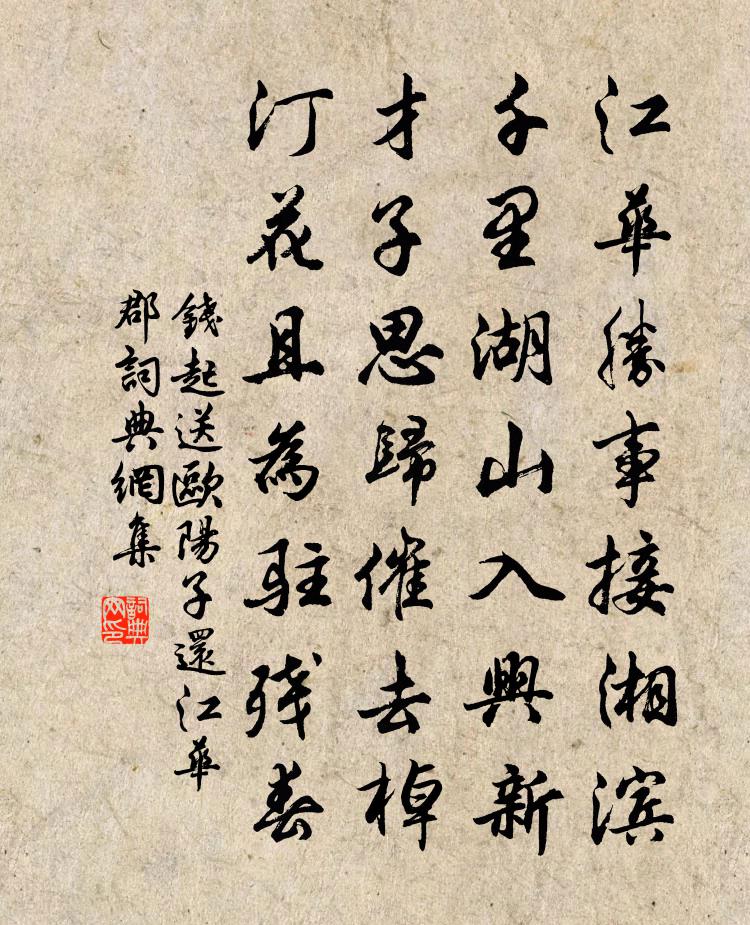 江華勝事接湘滨
千里湖山入興新
才子思歸催去棹
汀花且為駐残春
錢起送歐陽子還江華
郡詞典網集
詞典
网印